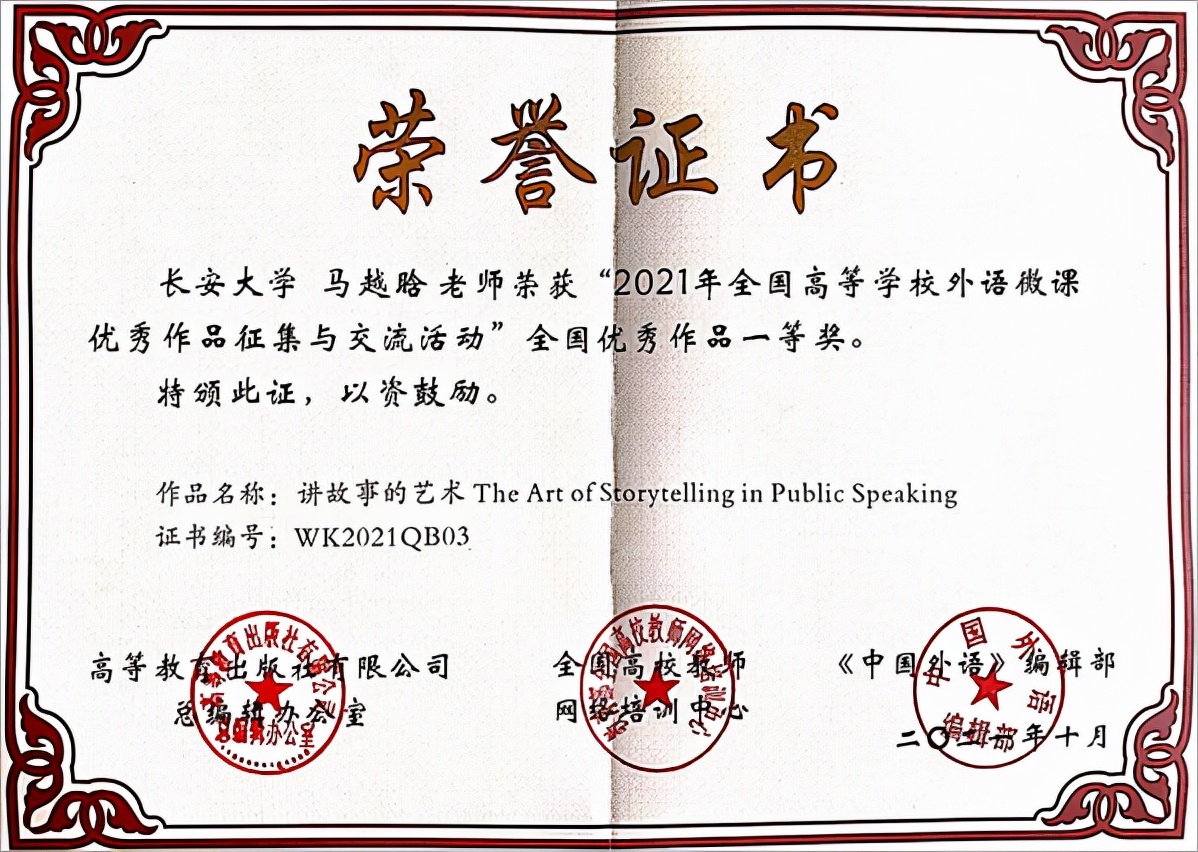 荣誉证书
长安大学 马越晗 老师荣获“2021年全国高等学校外语微课
优秀作品征集与交流活动”全国优秀作品一等奖。
特颁此证，以资鼓励。
作品名称：讲故事的艺术 The Art of Storytelling in Public Speaking
证书编号：WK2021QB03
高等教育出版社有限公司
总编辑办公室
全国高校教师
网络培训中心
《中国外语》编辑部
二〇二一年十月
高等教育出版社有限公司
总编辑办公室
全国高校教师网络培训中心
中国外语
编辑部